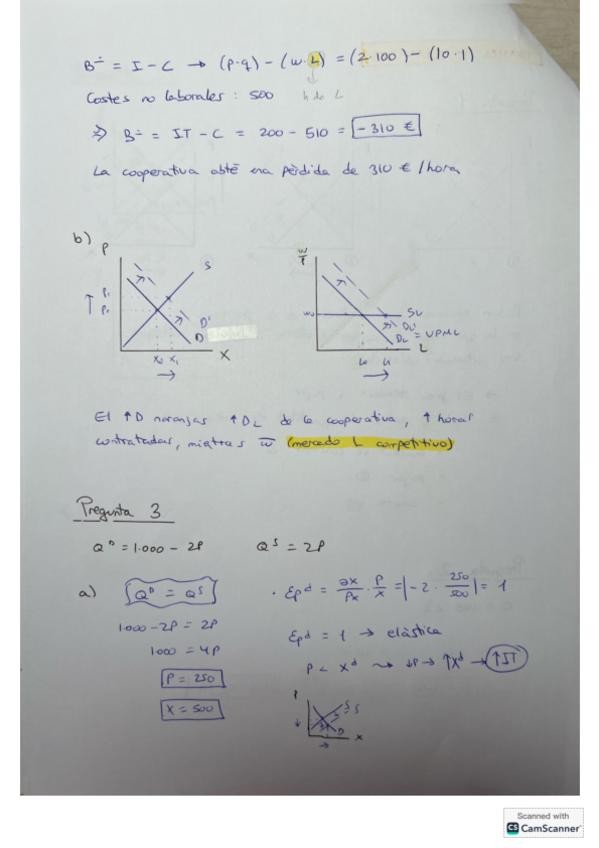 B = I - C → (p·q) - (w·L) = (2·100) - (10·1)
Costes no laborales: 500
h de L
⇒ B = IT - C = 200 - 510 = -310 €
La cooperativa obté una pèrdida de 310 €/hora
b)
P
S
P₁
P₀
D'
D
X₀ X₁
X
W/P
W₀
SL
DL'
DL = VPML
L₀ L₁
L
El ↑D naranjas ↑DL de la cooperativa, ↑ horas
contratadas, mientras w̅ (mercado L competitivo)
Pregunta 3
Qᴰ = 1.000 - 2P
Qˢ = 2P
a)
Qᴰ = Qˢ
1.000 - 2P = 2P
1.000 = 4P
P = 250
X = 500
· Epᵈ = ∂X/Px · P/X = |-2 · 250/500| = 1
Epᵈ = 1 → elástica
P < Xᵈ ⇝ ↓P → ↑Xᵈ → ↑IT
P
S
D
X
Scanned with
CS CamScanner